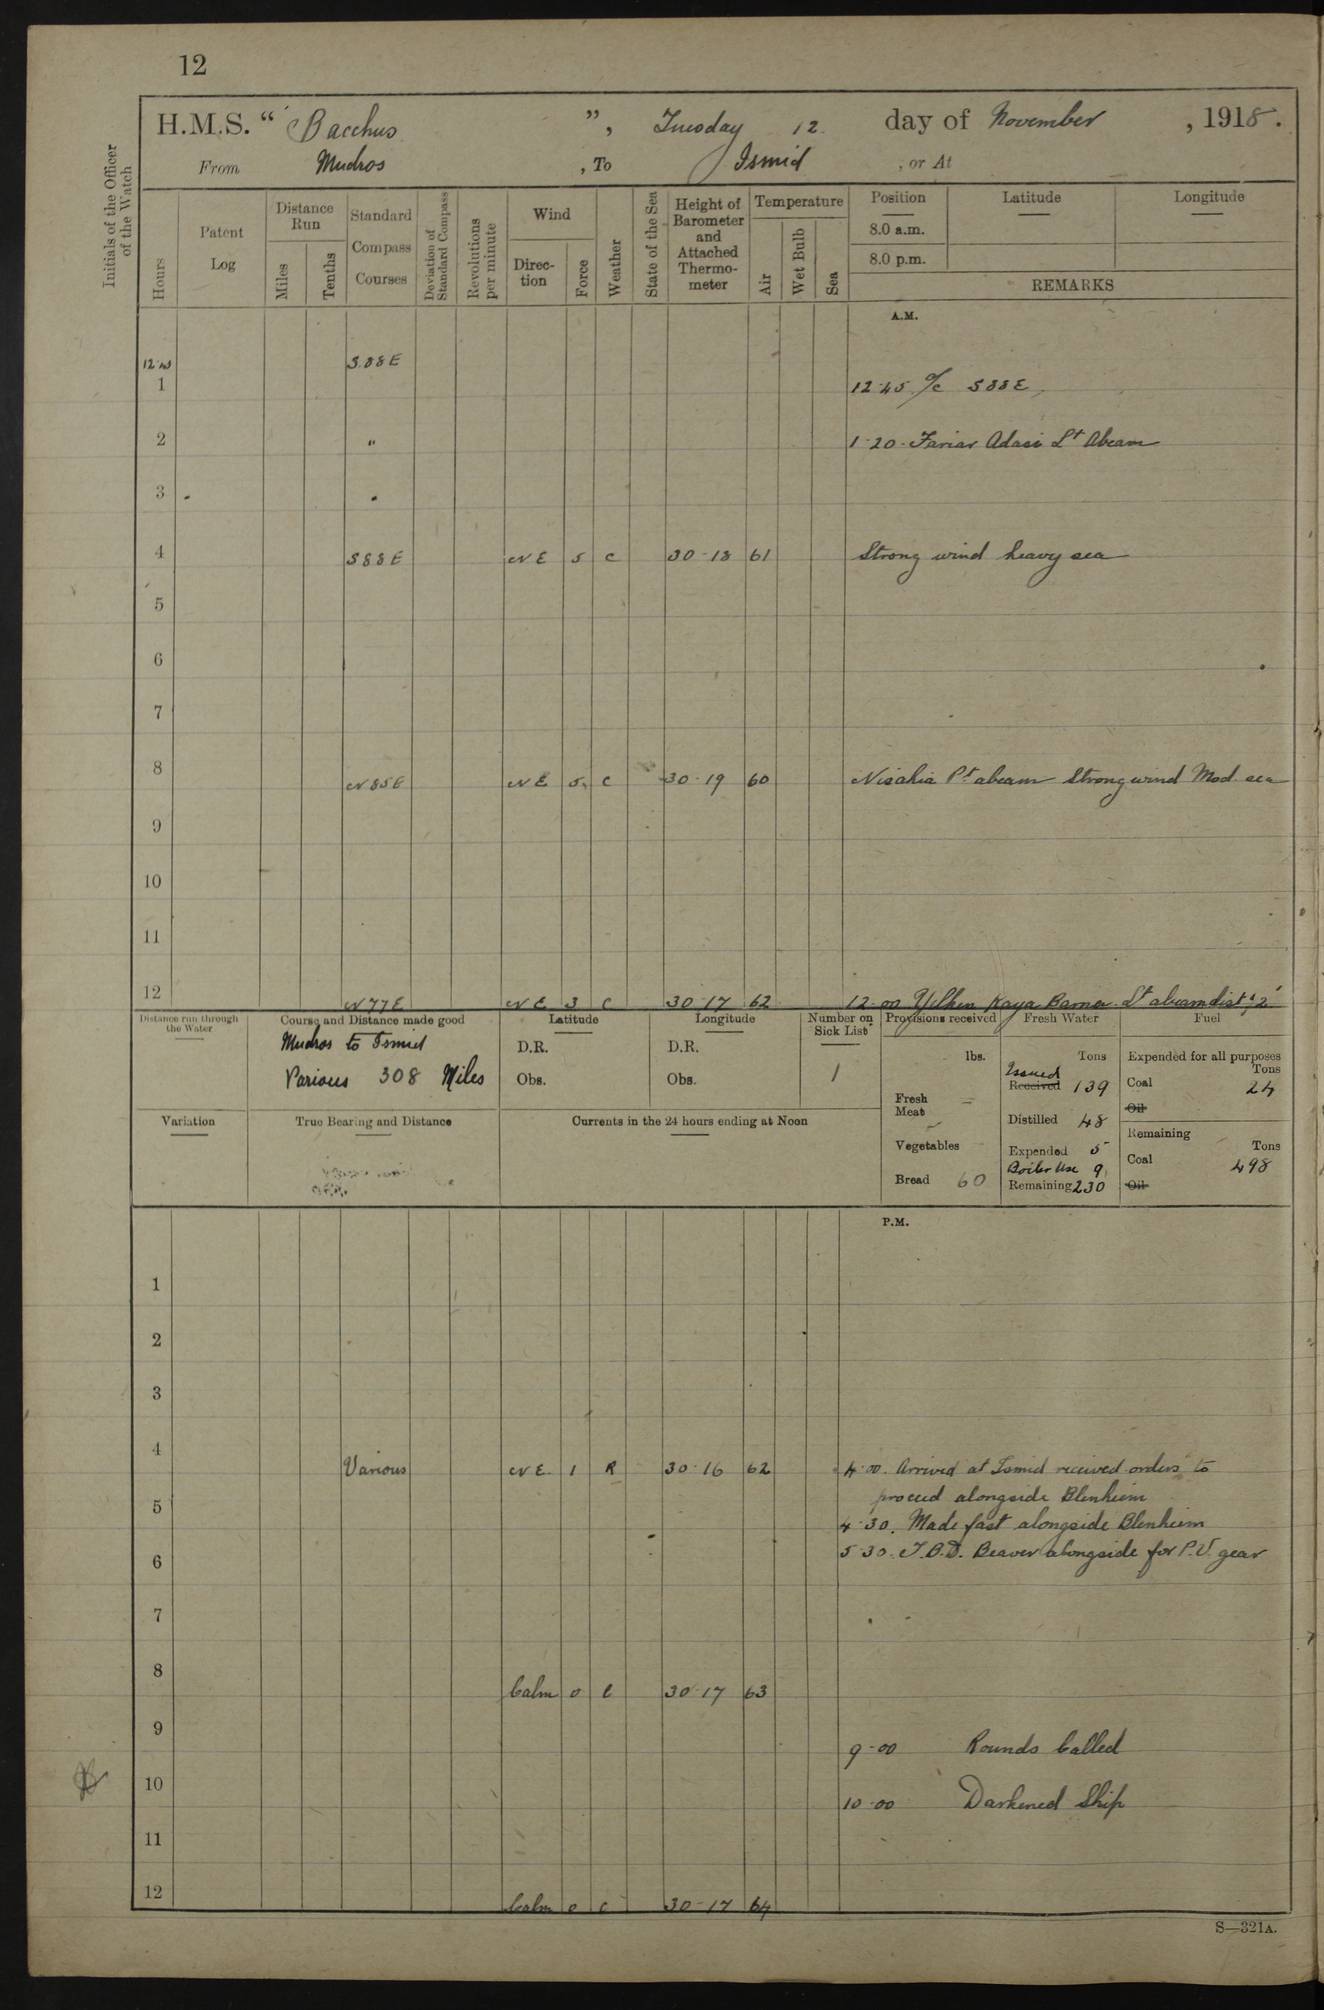 12
H.M.S. “ Bacchus ”, Tuesday 12 day of November , 1918.
From Mudros , To Ismid , or At
Initials of the Officer of the Watch
Hours
Patent Log
Distance Run
Miles
Tenths
Standard Compass Courses
Deviation of Standard Compass
Revolutions per minute
Wind
Direc-tion
Force
Weather
State of the Sea
Height of Barometer and Attached Thermo-meter
Temperature
Air
Wet Bulb
Sea
Position Latitude Longitude
8.0 a.m.
8.0 p.m.
REMARKS
A.M.
S 88 E
1 12.45 a/c S 88 E
2 " 1.20. Adasi Lt Abeam
3
4 S 88 E NE 5 C 30.18 61 Strong wind heavy sea
5
6
7
8 N 85 E NE 5 C 30.19 60 Pt abeam Strong wind Mod sea
9
10
11
12 N 77 E NE 3 C 30.17 62 12.00 Kaya Lt abeam dist 2'
Distance run through the Water
Course and Distance made good
Mudros to Ismid
Various 308 Miles
Latitude
D.R.
Obs.
Longitude
D.R.
Obs.
Number on Sick List
1
Provisions received
lbs.
Fresh Meat
Vegetables
Bread 60
Fresh Water
Tons
Issued
Received 139
Distilled 48
Expended 5
Boiler Use 9
Remaining 230
Fuel
Expended for all purposes
Tons
Coal 24
Oil
Remaining
Tons
Coal 498
Oil
Variation
True Bearing and Distance
Currents in the 24 hours ending at Noon
P.M.
1
2
3
4 Various NE 1 R 30.16 62 4.00. Arrived at Ismid received orders to
proceed alongside Blenheim
5 4.30. Made fast alongside Blenheim
6 5.30. T.B.D. Beaver alongside for P.V. gear
7
8 Calm 0 C 30.17 63
9 9.00 Rounds Called
10 10.00 Darkened Ship
11
12 Calm 0 C 30.17 64
S—321A.